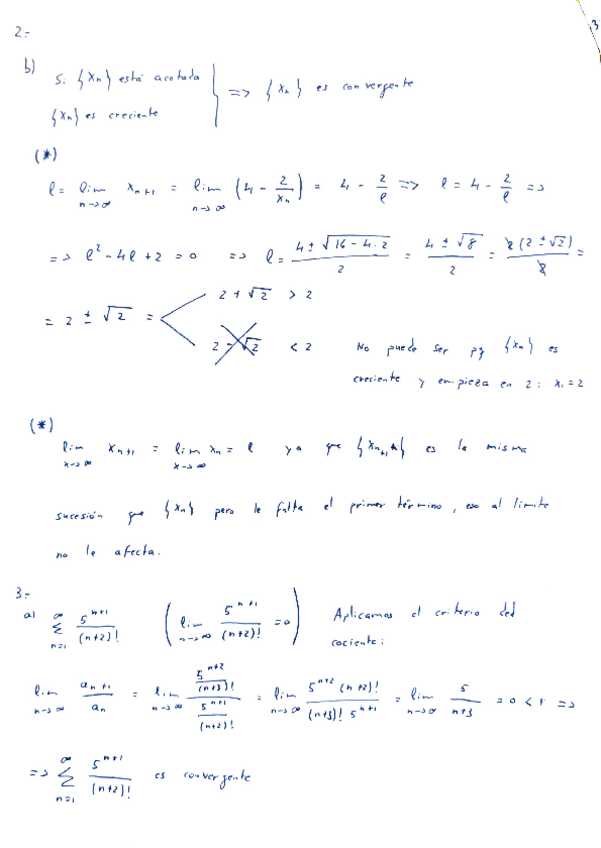 3
2.-
b) Si {xn} está acotada
{xn} es creciente } => {xn} es convergente
(*)
l = lim n->∞ xn+1 = lim n->∞ (4 - 2/xn) = 4 - 2/l => l = 4 - 2/l =>
=> l² - 4l + 2 = 0 => l = (4 ± √(16 - 4·2))/2 = (4 ± √8)/2 = 2(2 ± √2)/2 =
= 2 ± √2 = 2 + √2 > 2
2 - √2 < 2 No puede ser pq {xn} es
creciente y empieza en 2: x1 = 2
(*)
lim x->∞ xn+1 = lim x->∞ xn = l ya que {xn+1} es la misma
sucesión que {xn} pero le falta el primer término, eso al límite
no le afecta.
3.-
a) ∑ n=1 ∞ 5^(n+1)/(n+2)! (lim n->∞ 5^(n+1)/(n+2)! = 0) Aplicamos el criterio del
cociente:
lim n->∞ an+1/an = lim n->∞ (5^(n+2)/(n+3)!)/(5^(n+1)/(n+2)!) = lim n->∞ 5^(n+2) (n+2)!/((n+3)! 5^(n+1)) = lim n->∞ 5/(n+3) = 0 < 1 =>
=> ∑ n=1 ∞ 5^(n+1)/(n+2)! es convergente